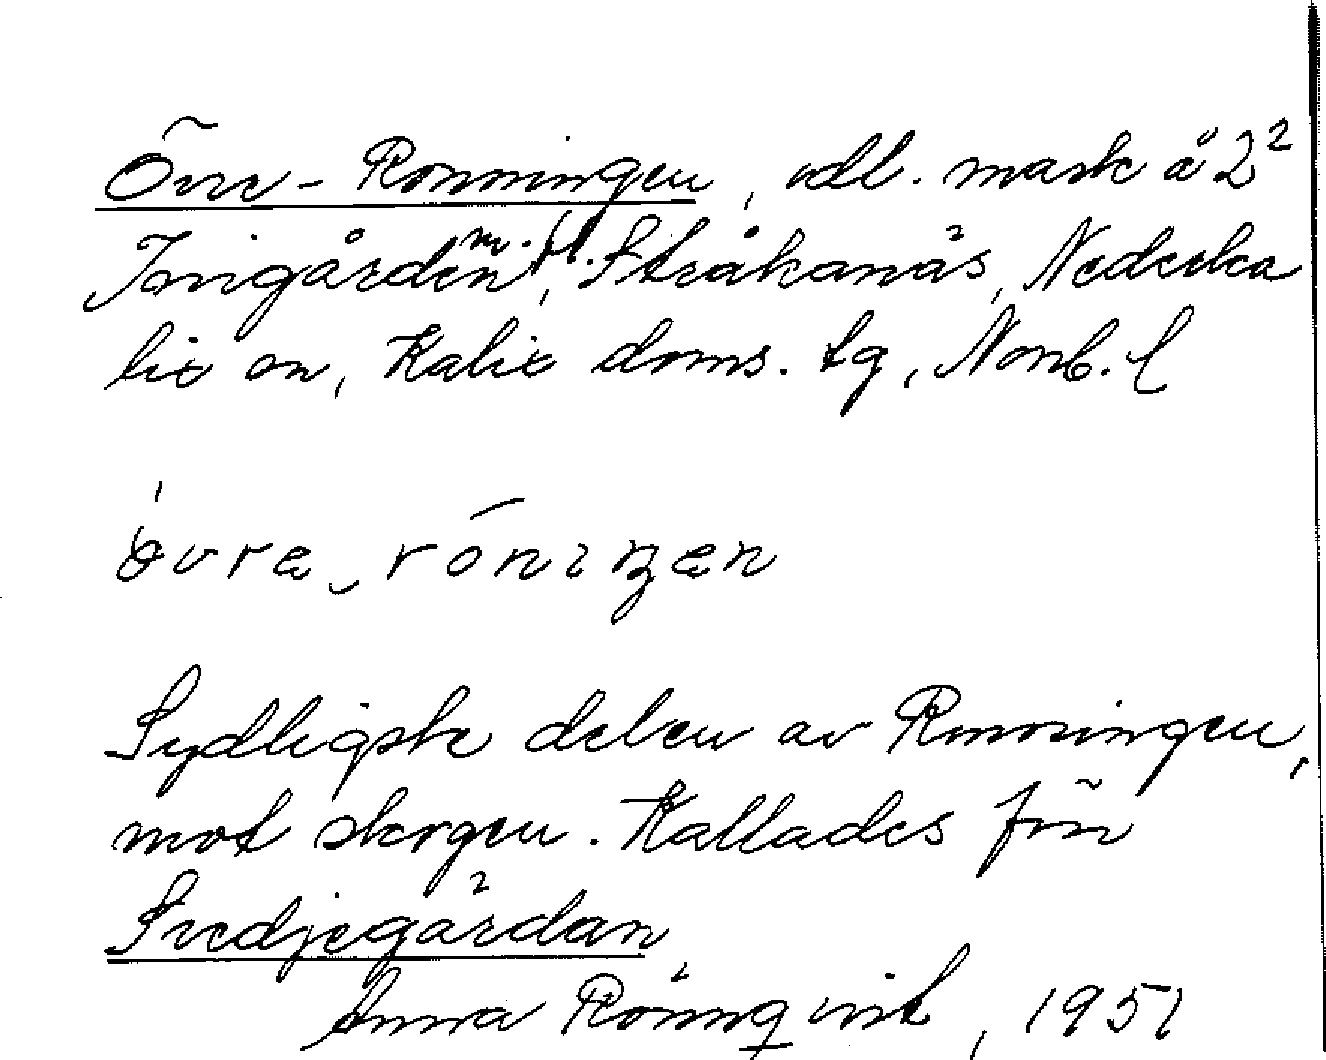 Övre-Ronningen, odl. mark å 2²
Jonigården m.fl., Stråkanäs, Nederka
lix sn, Kalix doms. tg, Norrb. l
òvrə‿rṓniŋən
Sydligste delen av Ronningen,
mot skogen. Kallades förr
Svedjegärdan
Anna Rönnqvist, 1951